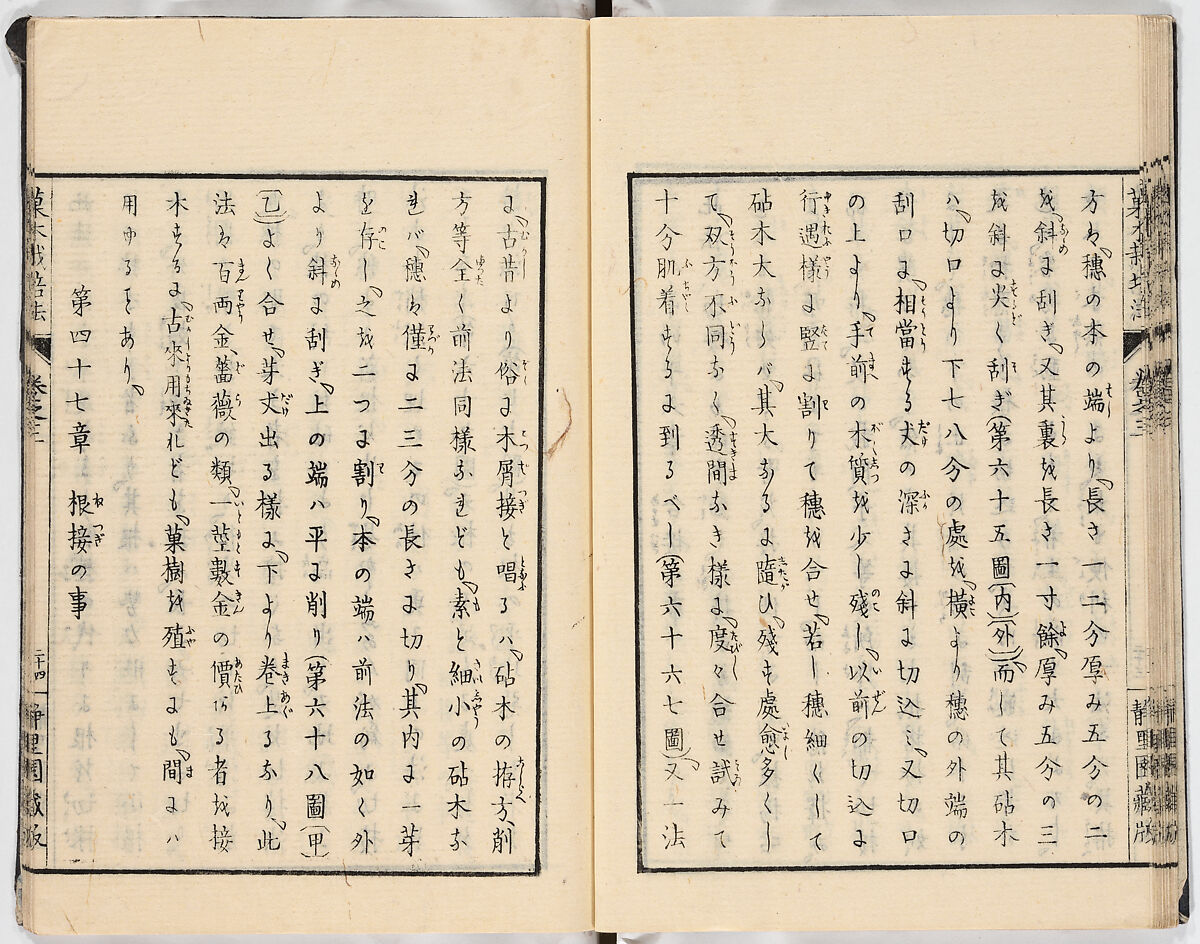 菓木栽培法 卷之三 靜里園藏版
方ハ、穗の本の端より、長さ一二分厚み五分の二
を、斜に刮ぎ、又其裏を長さ一寸餘、厚み五分の三
を斜に尖く刮ぎ(第六十五圖(内)(外))而して其砧木
ハ、切口より下七八分の處を、横より穗の外端の
刮口に、相當する丈の深さに斜に切込ミ、又切口
の上より、手前の木質を少し殘し、以前の切込に
行遇樣に竪に割りて穗を合せ、若し穗細くして
砧木大ならバ、其大なるに隨ひ、殘す處愈多くし
て、双方不同なく、透間なき樣に、度々合せ試みて
十分肌着するに到るべし(第六十六七圖)又一法
に、古昔より俗に木屑接と唱るハ、砧木の拵方、削
方等全く前法同樣なれども、素と細小の砧木な
れバ、穗ハ僅に二三分の長さに切り、其内に一芽
を存し、之を二つに割り、本の端ハ前法の如く外
より斜に刮ぎ、上の端ハ平に削り(第六十八圖(甲)
(乙))よく合せ、芽丈出る樣に、下より卷上るなり、此
法ハ百両金、薔薇の類、一莖數金の價ある者を接
木するに、古來用來れども、菓樹を殖すにも、間にハ
用ゆることあり、
第四十七章 根接の事
菓木栽培法 卷之三 二十四 靜里園藏版